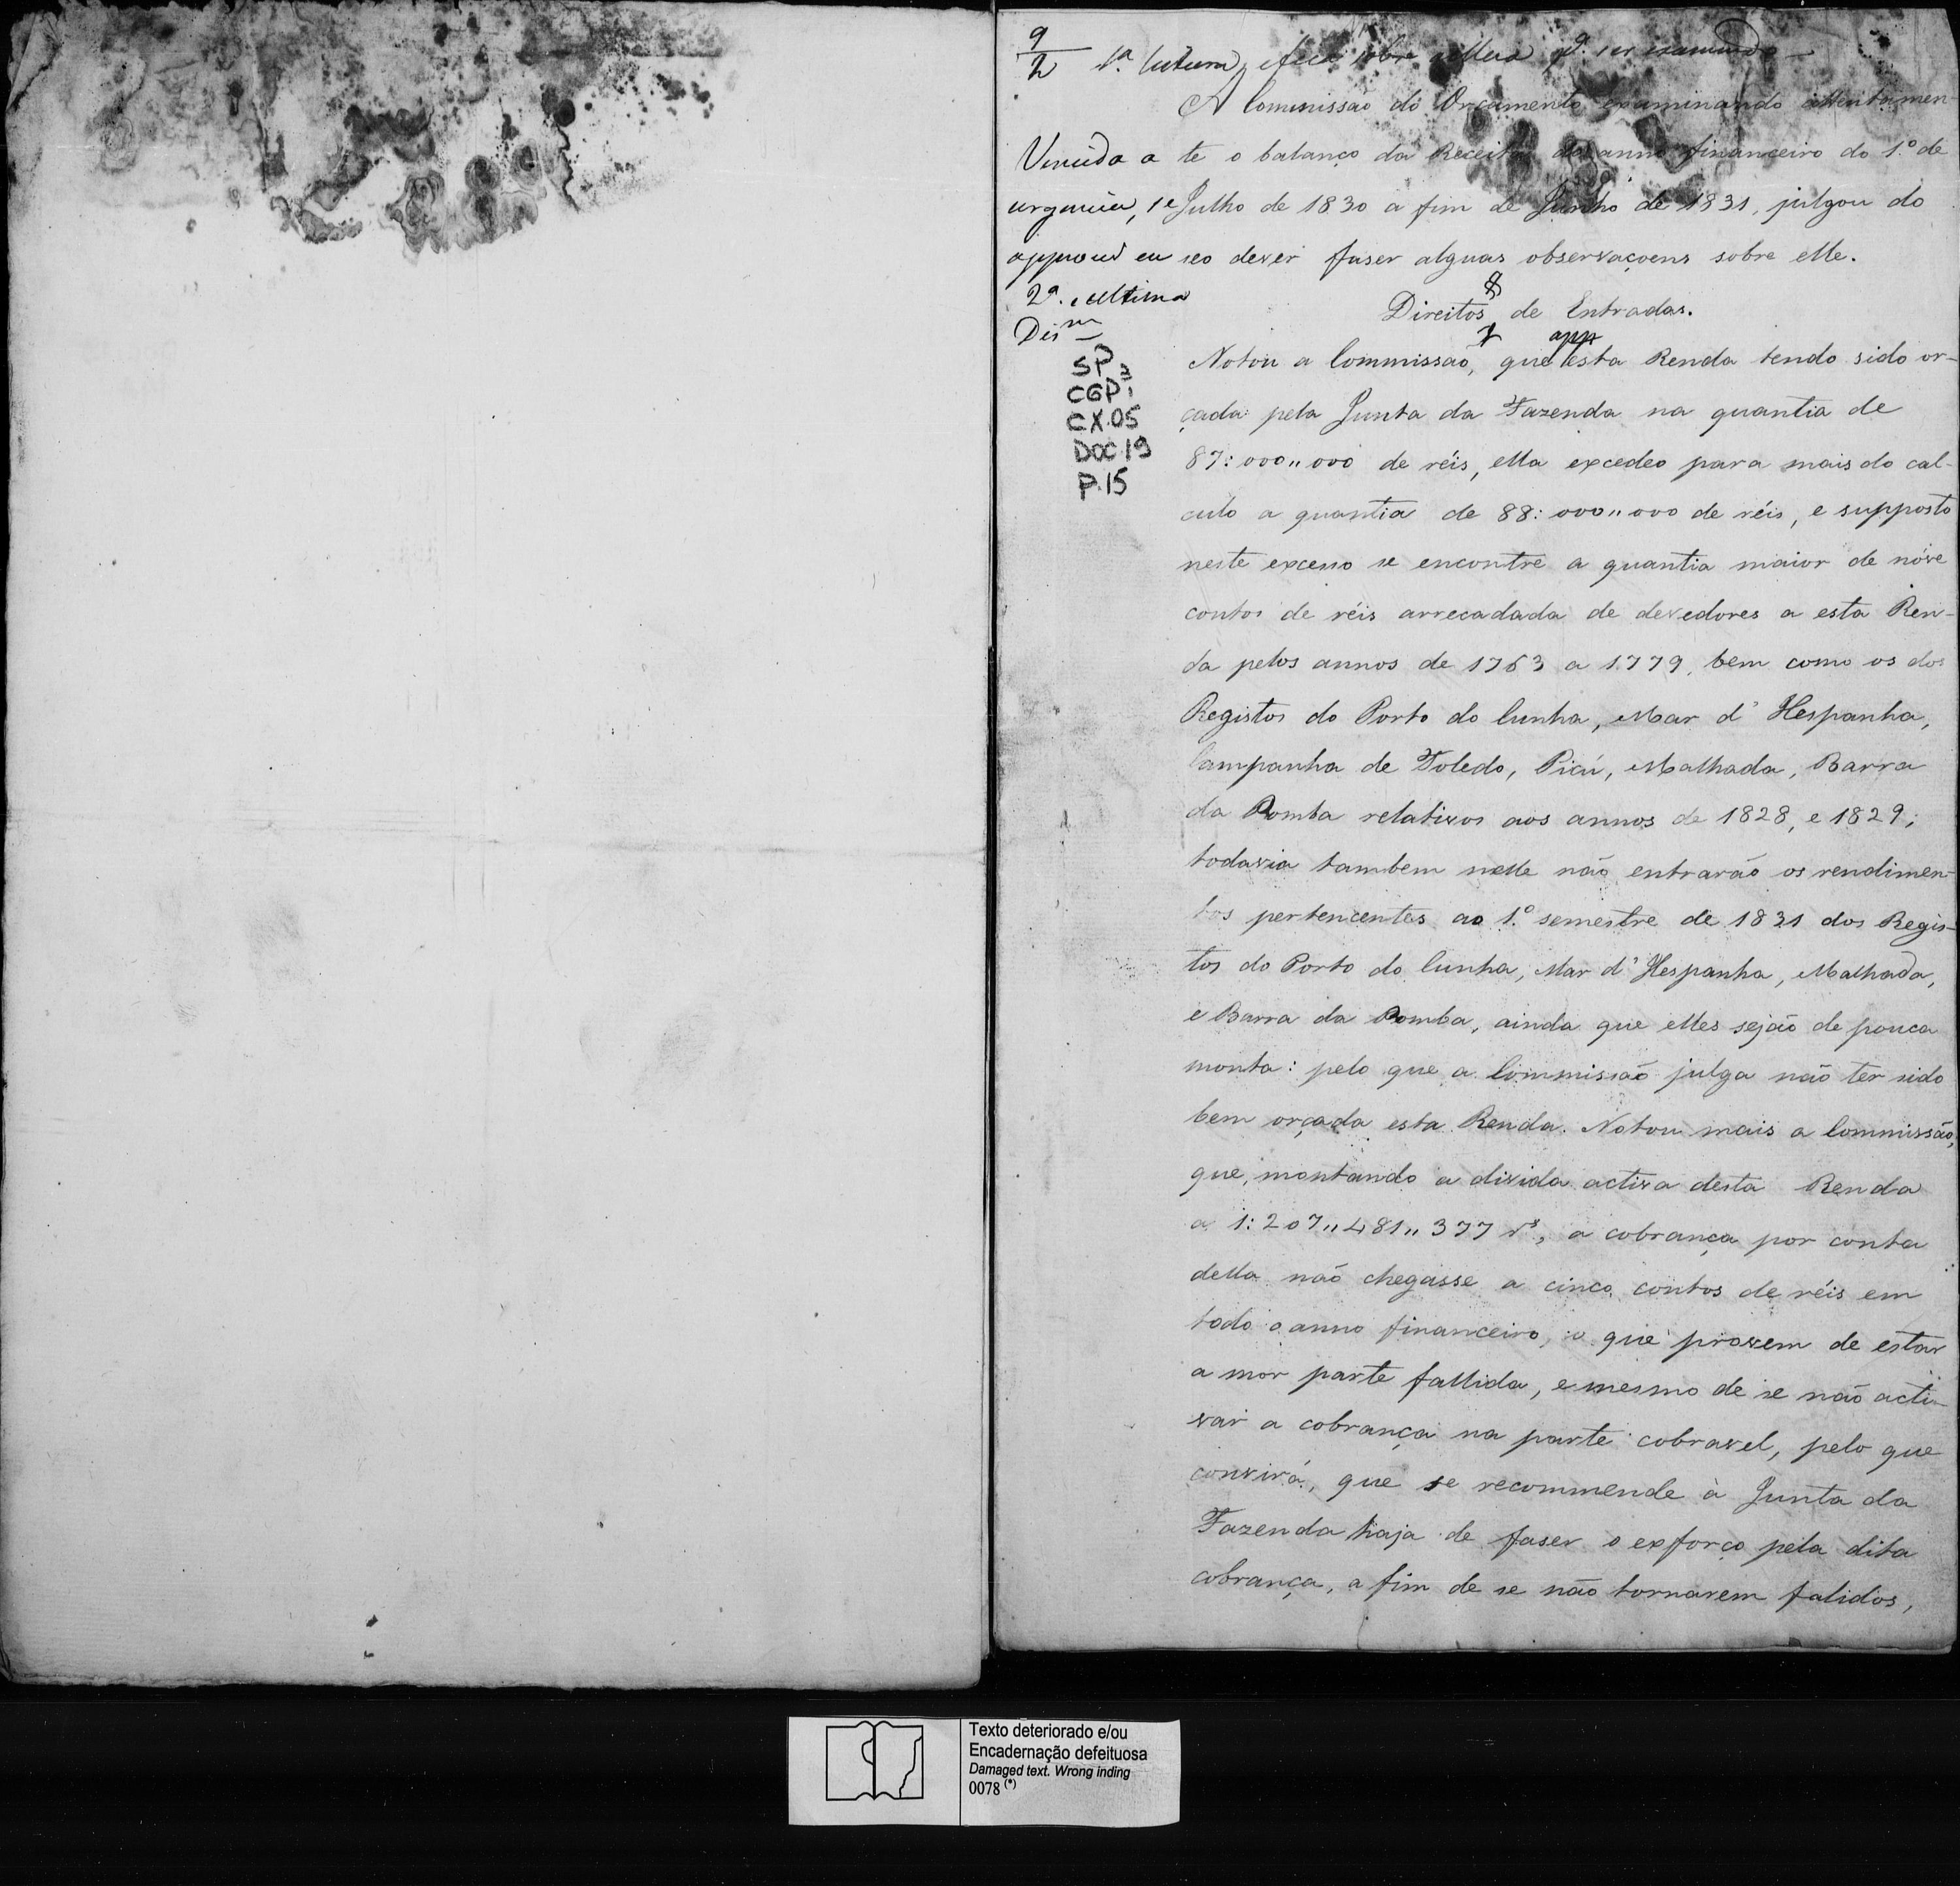 9
2
1.ª leitura, e fica sobre a Mesa p.ª ser examinado
A Commissão do Orçamento examinando attentamen-
te o balanço da Receita do anno financeiro do 1.º de
Julho de 1830 a fim de Junho de 1831, julgou do
seo dever faser alguas observaçoens sobre elle.
Vencida a
urgencia, se
approvou em
2.ª e ultima
Dis.m
SP
CGP 1
CX.05
DOC.19
P.15
Direitos de Entradas.
app
Notou a Commissão, que esta Renda tendo sido or-
çada pela Junta da Fazenda na quantia de
87:000,,000 de réis, ella excedeo para mais do cal-
culo a quantia de 88:000,,000 de réis, e supposto
neste excesso se encontre a quantia maior de nóve
contos de réis arrecadada de devedores a esta Ren-
da pelos annos de 1763 a 1779, bem como os dos
Registos do Porto do Cunha, Mar d'Hespanha,
Campanha de Toledo, Picú, Malhada, Barra
da Pomba relativos aos annos de 1828, e 1829;
todavia tambem nelle não entrarão os rendimen-
tos pertencentes ao 1.º semestre de 1831 dos Regis-
tos do Porto do Cunha, Mar d'Hespanha, Malhada,
e Barra da Pomba, ainda que elles sejão de pouca
monta: pelo que a Commissão julga não ter sido
bem orçada esta Renda. Notou mais a Commissão,
que, montando a divida activa desta Renda
a 1:207,,481,,377 rs, a cobrança por conta
della não chegasse a cinco contos de réis em
todo o anno financeiro, o que provem de estar
a mor parte fallida, e mesmo de se não acti-
var a cobrança na parte cobravel, pelo que
convirá, que se recommende à Junta da
Fazenda haja de faser o exforço pela dita
cobrança, a fim de se não tornarem falidos,
Texto deteriorado e/ou
Encadernação defeituosa
Damaged text. Wrong inding
0078 (*)